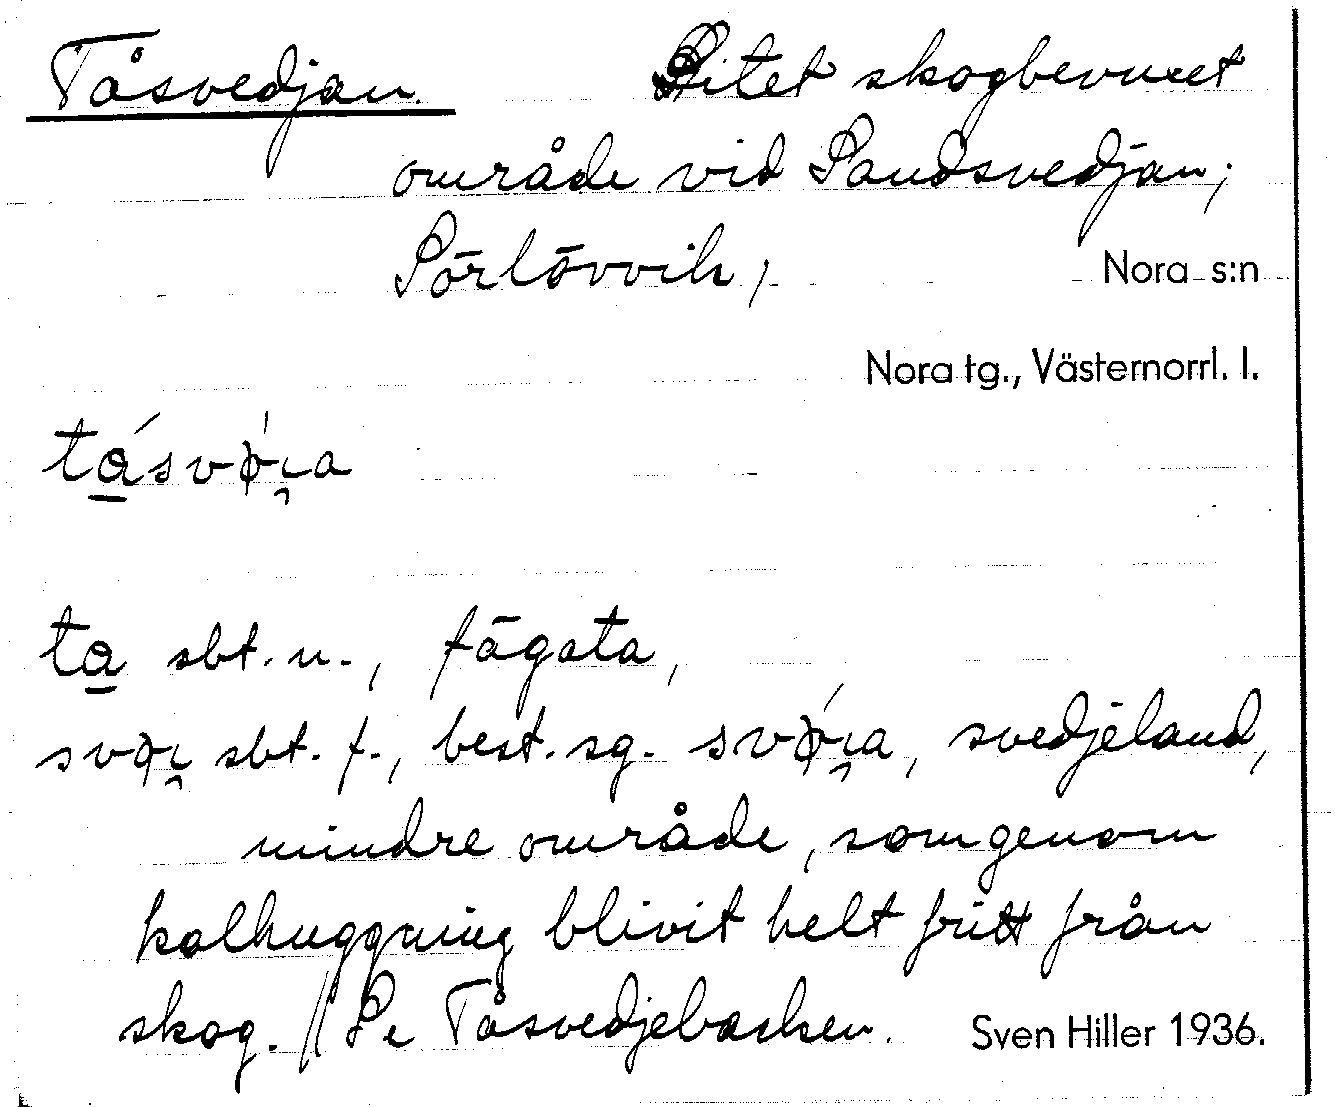 Tåsvedjan. Litet skogbevuxet
område vid Sandsvedjan,
Sörlövvik, Nora s:n
Nora tg., Västernorrl. l.
ta sbt. n., fägata,
sbt. f., best. sg. svedjeland,
mindre område, som genom
kalhuggning blivit helt fritt från
skog. // Se Tåsvedjebacken. Sven Hiller 1936.